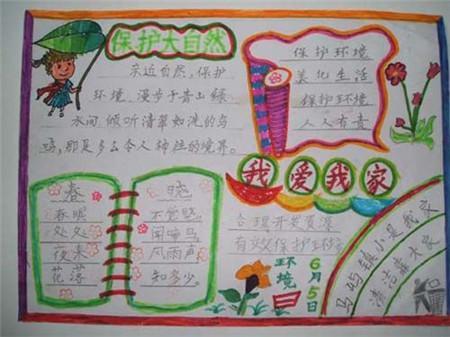 保护大自然
亲近自然,保护
环境、漫步于青山绿
水间,倾听清翠如洗的鸟
鸣,那是多么令人神往的境界。
保护环境
美化生活
保护环境
人人有责
我爱我家
春晓
春眠不觉晓
处处闻啼鸟
夜来风雨声
花落知多少。
合理开发资源
有效保护
6月5日
环境日
马鸣镇小是我家
清洁靠大家